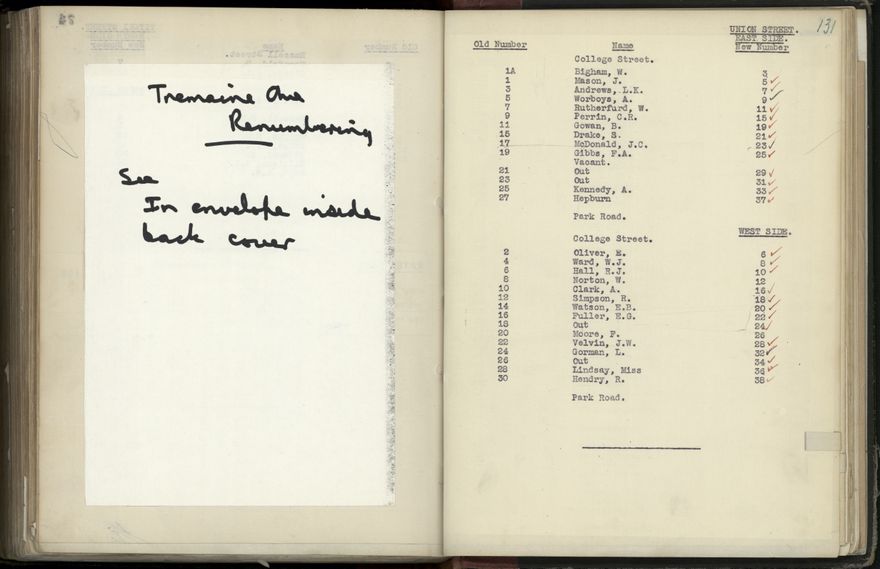 Tremaine Ave
Renumbering
See
In envelope inside
back cover
131
UNION STREET.
EAST SIDE.
Old Number Name New Number
College Street.
1A Bigham, W. 3
1 Mason, J. 5
3 Andrews, L.K. 7
5 Worboys, A. 9
7 Rutherfurd, W. 11
9 Perrin, C.R. 15
11 Gowan, B. 19
15 Drake, S. 21
17 McDonald, J.C. 23
19 Gibbs, F.A. 25
Vacant.
21 Out 29
23 Out 31
25 Kennedy, A. 33
27 Hepburn 37
Park Road.
WEST SIDE.
College Street.
2 Oliver, E. 6
4 Ward, W.J. 8
6 Hall, R.J. 10
8 Norton, W. 12
10 Clark, A. 16
12 Simpson, R. 18
14 Watson, E.B. 20
16 Fuller, E.G. 22
18 Out 24
20 Moore, F. 26
22 Velvin, J.W. 28
24 Gorman, L. 32
26 Out 34
28 Lindsay, Miss 36
30 Hendry, R. 38
Park Road.